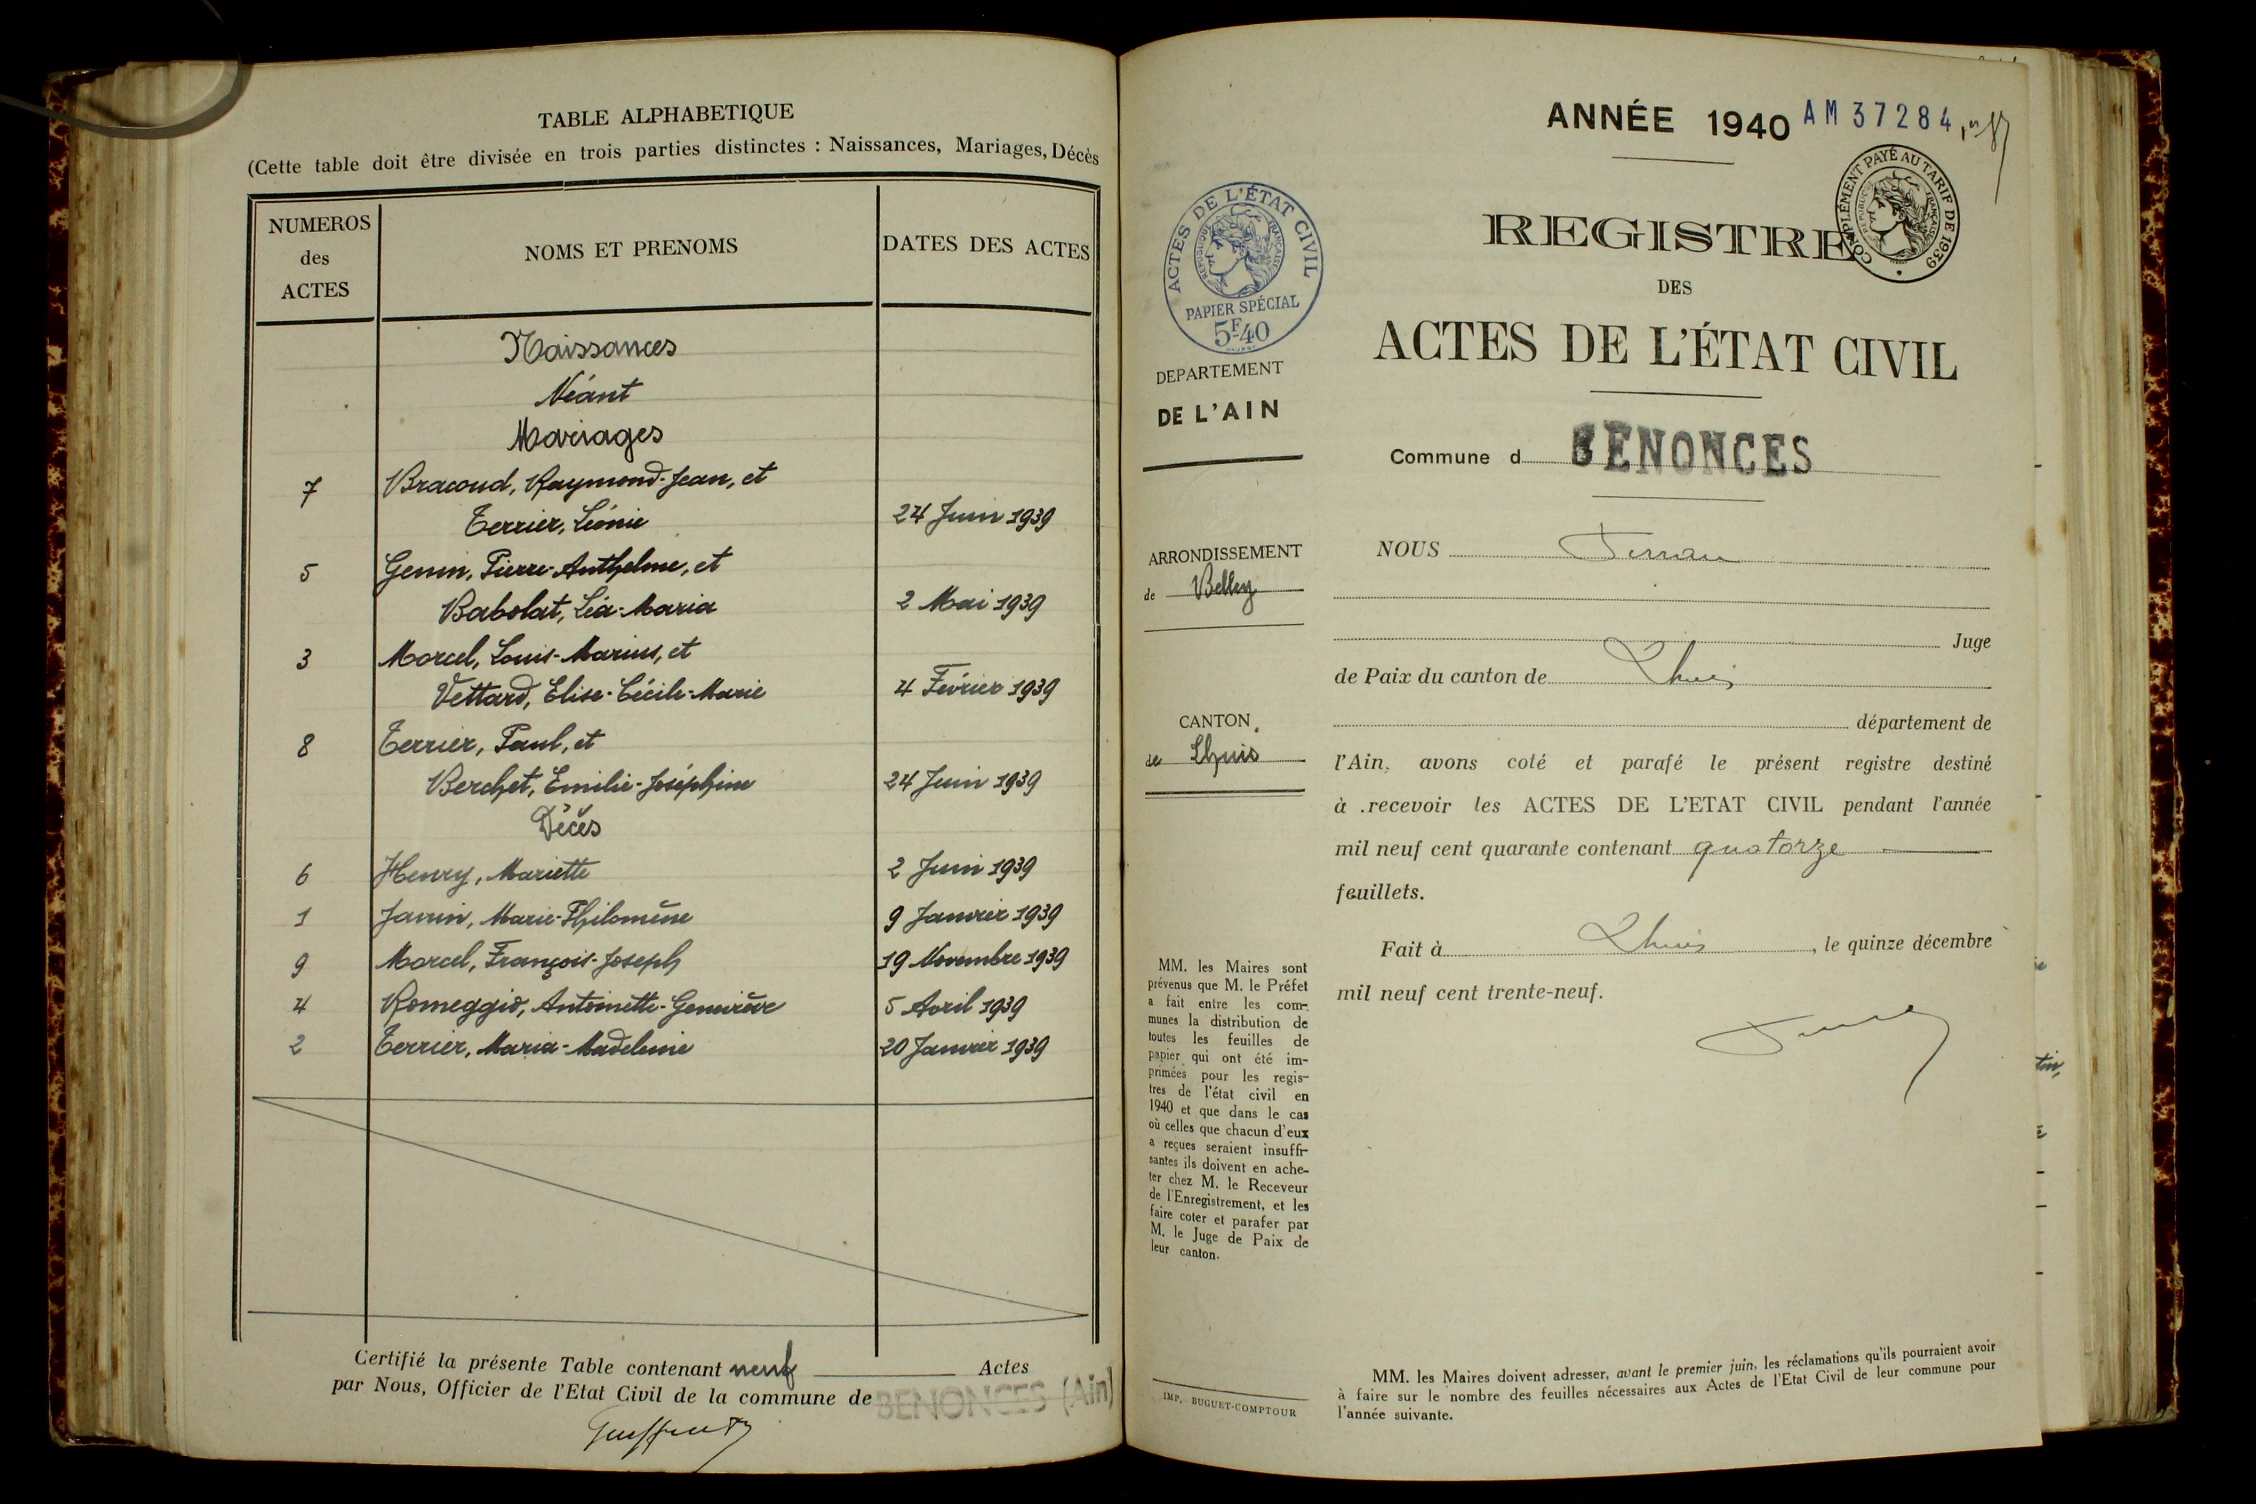 TABLE ALPHABETIQUE
(Cette table doit être divisée en trois parties distinctes : Naissances, Mariages, Décès
NUMEROS des ACTES
NOMS ET PRENOMS
DATES DES ACTES
Naissances
Néant
Mariages
7 Bracoud, Raymond-Jean, et
Terrier, Léonie 24 Juin 1939
5 Genin, Pierre-Anthelme, et
Babolat, Léa-Maria 2 Mai 1939
3 Morcel, Louis-Marius, et
Vettard, Elise-Cécile-Marie 4 Février 1939
8 Terrier, Paul, et
Berchet, Emilie-Joséphine 24 Juin 1939
Décès
6 Henry, Mariette 2 Juin 1939
1 Janin, Marie-Philomène 9 Janvier 1939
9 Morcel, François-Joseph 19 Novembre 1939
4 Romeggio, Antoinette-Geneviève 5 Avril 1939
2 Terrier, Maria-Madeleine 20 Janvier 1939
Certifié la présente Table contenant neuf Actes
par Nous, Officier de l'Etat Civil de la commune de BENONCES (Ain)
ANNÉE 1940 AM 37284
COMPLÉMENT PAYÉ AU TARIF DE 1939
RÉPUBLIQUE FRANÇAISE
ACTES DE L'ÉTAT CIVIL
RÉPUBLIQUE FRANÇAISE
PAPIER SPÉCIAL
5F40
DEPARTEMENT
DE L'AIN
ARRONDISSEMENT
de Belley
CANTON
de Lhuis
MM. les Maires sont
prévenus que M. le Préfet
a fait entre les com-
munes la distribution de
toutes les feuilles de
papier qui ont été im-
primées pour les regis-
tres de l'état civil en
1940 et que dans le cas
où celles que chacun d'eux
a reçues seraient insuffi-
santes ils doivent en ache-
ter chez M. le Receveur
de l'Enregistrement, et les
faire coter et parafer par
M. le Juge de Paix de
leur canton.
IMP. BUGUET-COMPTOUR
REGISTRE
DES
ACTES DE L'ÉTAT CIVIL
Commune d BENONCES
NOUS
Juge
de Paix du canton de Lhuis
département de
l'Ain, avons coté et parafé le présent registre destiné
à .recevoir les ACTES DE L'ETAT CIVIL pendant l'année
mil neuf cent quarante contenant quatorze
feuillets.
Fait à Lhuis, le quinze décembre
mil neuf cent trente-neuf.
MM. les Maires doivent adresser, avant le premier juin, les réclamations qu'ils pourraient avoir
à faire sur le nombre des feuilles nécessaires aux Actes de l'Etat Civil de leur commune pour
l'année suivante.